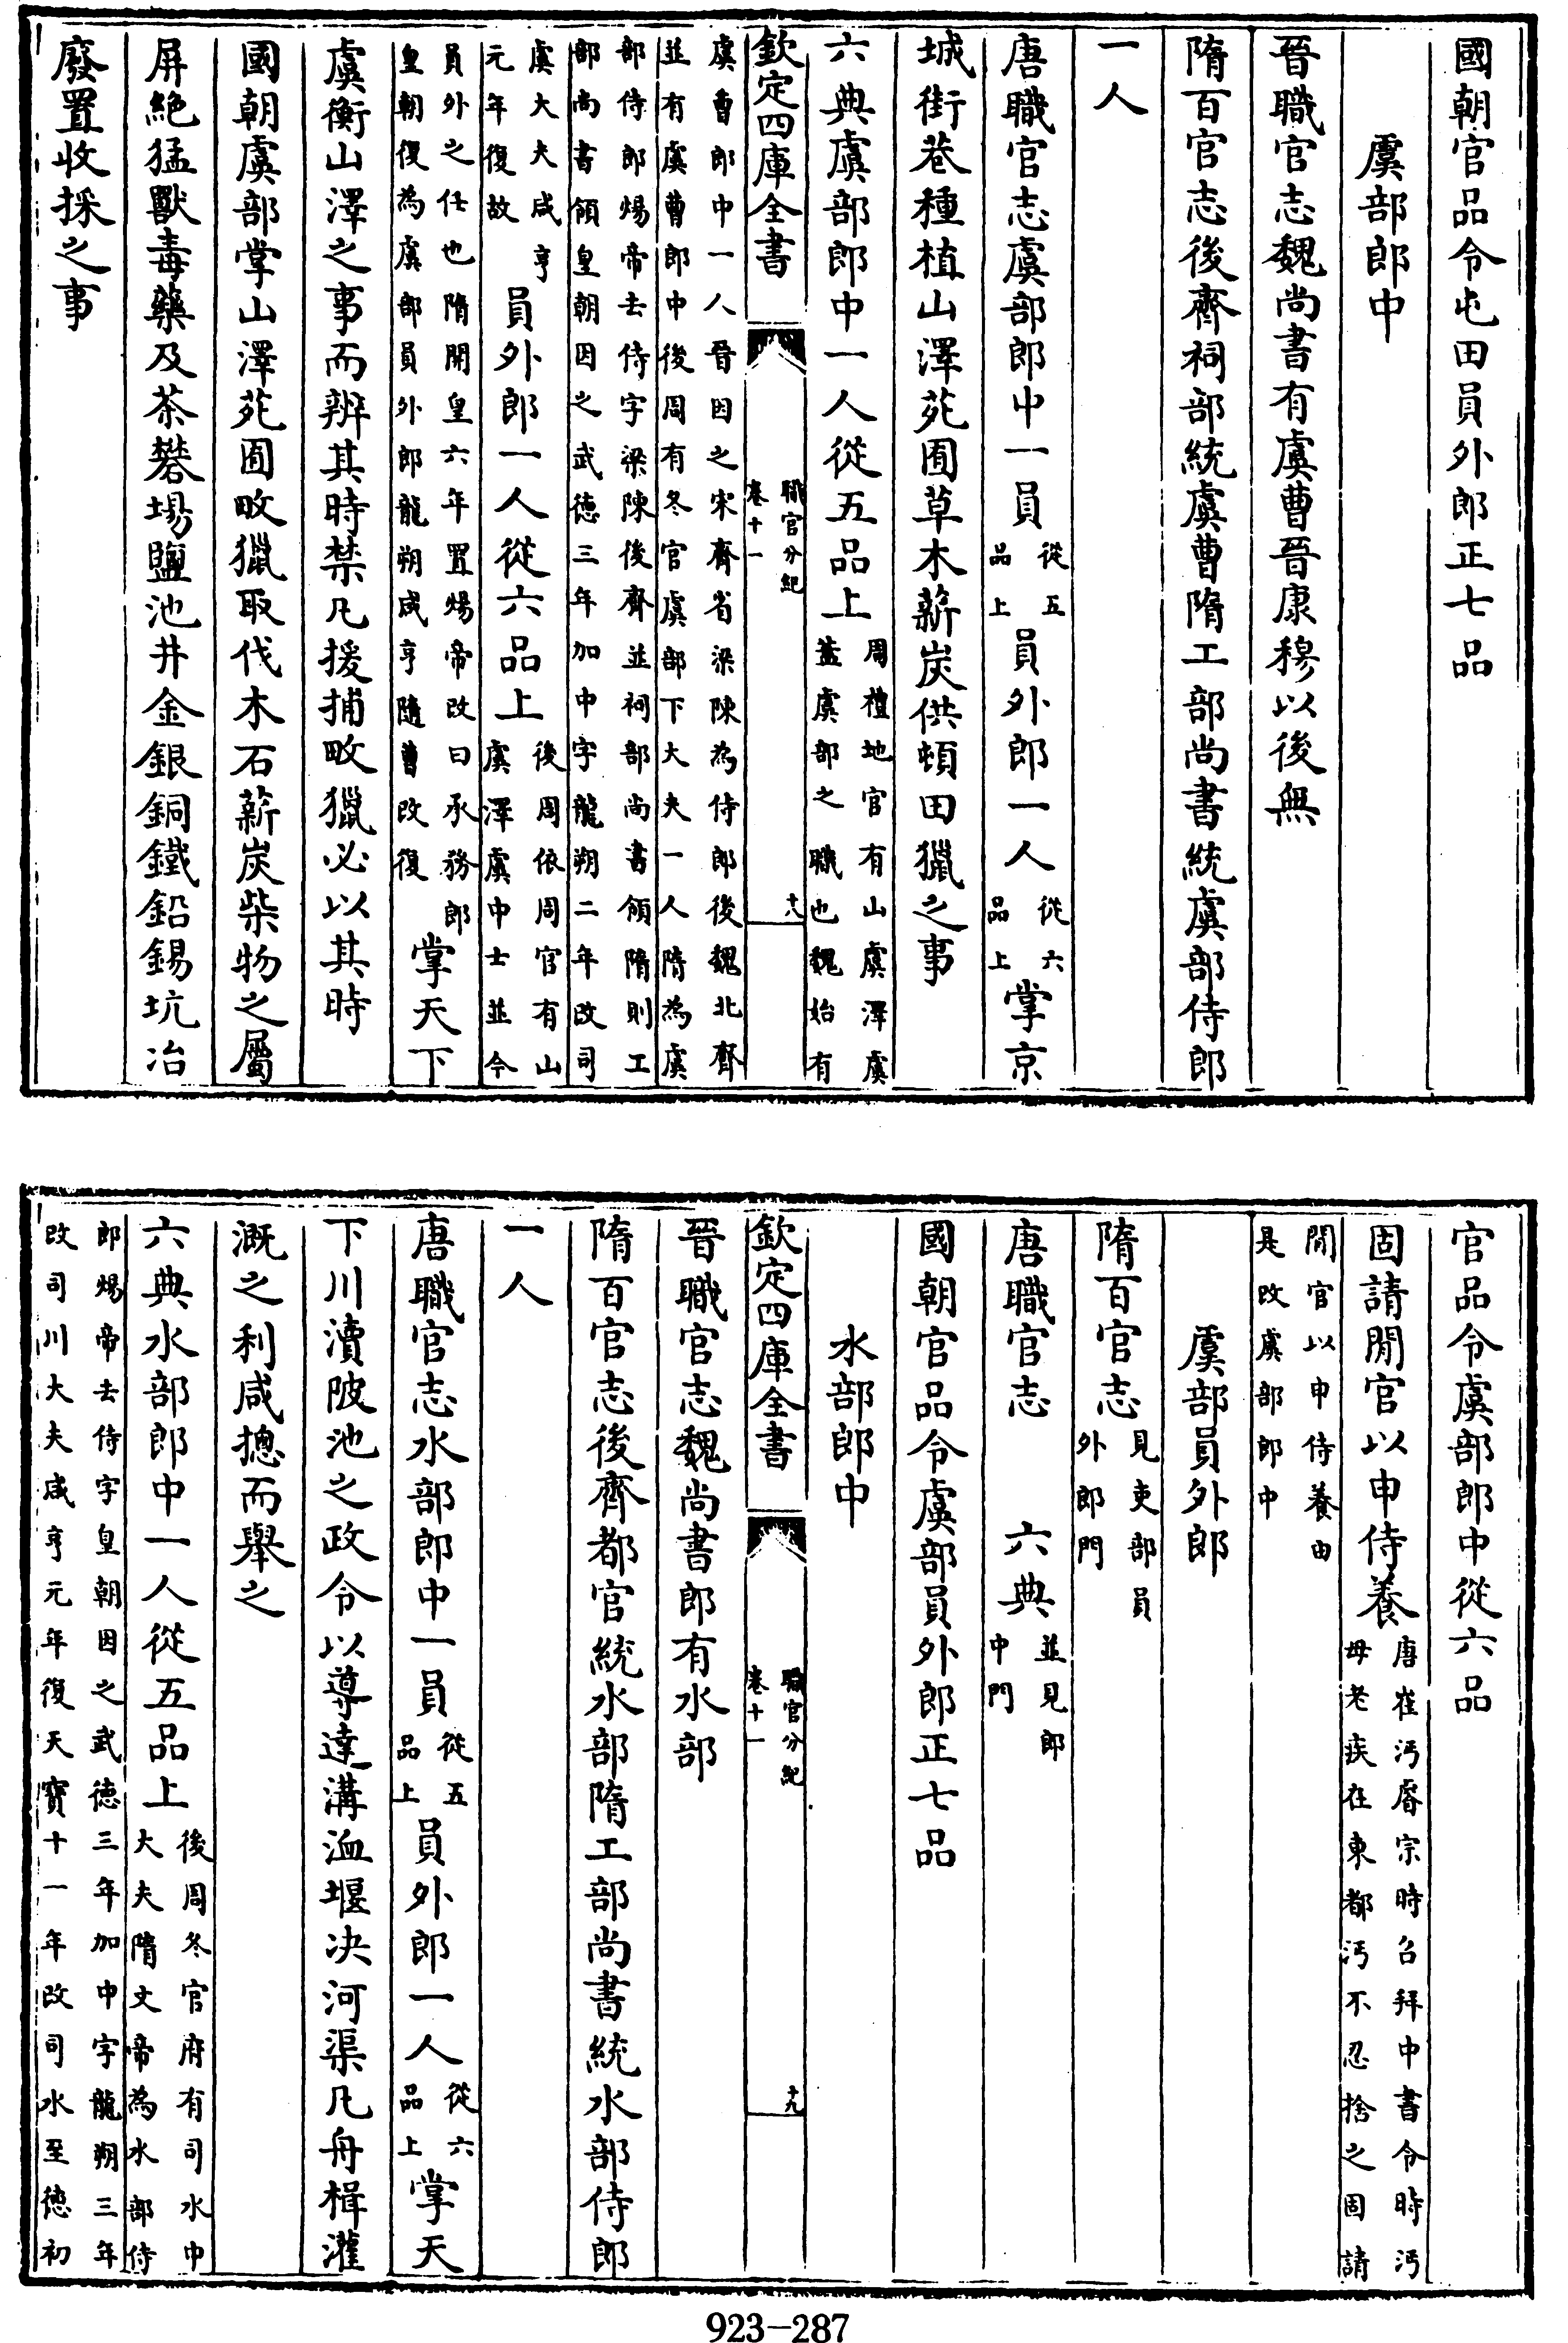 國朝官品令屯田員外郎正七品
虞部郎中
晉職官志魏尚書有虞曹晉康穆以後無
隋百官志後齊祠部統虞曹隋工部尚書統虞部侍郎
一人
唐職官志虞部郎中一員從五品上員外郎一人從六品上掌京
城街巷種植山澤苑囿草木薪炭供頓田獵之事
六典虞部郎中一人從五品上周禮地官有山虞澤虞蓋虞部之職也魏始有
欽定四庫全書
職官分紀
卷十一
十八
虞曹郎中一人晉因之宋齊省梁陳為侍郎後魏北齊
並有虞曹郎中後周有冬官虞部下大夫一人隋為虞
部侍郎煬帝去侍字梁陳後齊並祠部尚書領隋則工
部尚書領皇朝因之武德三年加中字龍朔二年改司
虞大夫咸亨元年復故員外郎一人從六品上後周依周官有山虞澤虞中士並今
員外之任也隋開皇六年置煬帝改曰承務郎皇朝復為虞部員外郎龍朔咸亨隨曹改復掌天下
虞衡山澤之事而辨其時禁凡援捕畋獵必以其時
國朝虞部掌山澤苑囿畋獵取伐木石薪炭柴物之屬
屏絶猛獸毒藥及茶礬場鹽池井金銀銅鐵鉛錫坑冶
廢置收採之事
官品令虞部郎中從六品
固請閒官以申侍養唐崔沔睿宗時召拜中書令時沔母老疾在東都沔不忍捨之固請
閒官以申侍養由是改虞部郎中
虞部員外郎
隋百官志見吏部員外郎門
唐職官志 六典並見郎中門
國朝官品令虞部員外郎正七品
水部郎中
欽定四庫全書
職官分紀
卷十一
十九
晉職官志魏尚書郎有水部
隋百官志後齊都官統水部隋工部尚書統水部侍郎
一人
唐職官志水部郎中一員從五品上員外郎一人從六品上掌天
下川瀆陂池之政令以導達溝洫堰決河渠凡舟楫灌
溉之利咸摠而舉之
六典水部郎中一人從五品上後周冬官府有司水中大夫隋文帝為水部侍
郎煬帝去侍字皇朝因之武德三年加中字龍朔三年
改司川大夫咸亨元年復天寶十一年改司水至德初
923-287